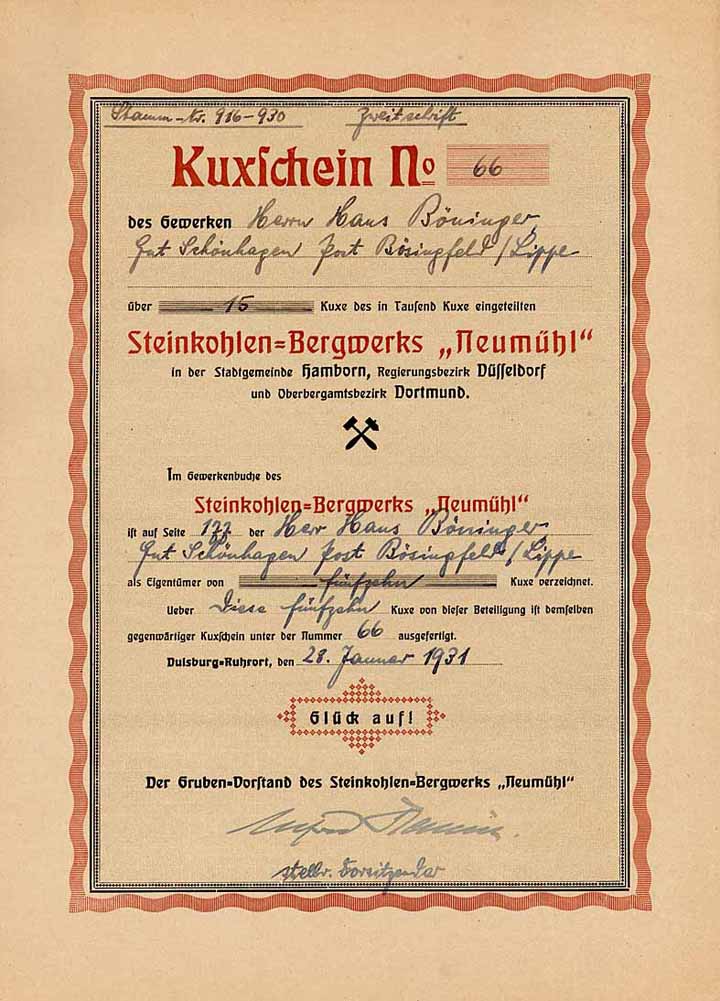 Stamm-Nr. 916-930 Zweitschrift
Kuxschein No 66
des Gewerken Herrn Hans Böninger,
Gut Schönhagen Post Bösingfeld / Lippe
über 15 Kuxe des in Tausend Kuxe eingeteilten
Steinkohlen=Bergwerks „Neumühl“
in der Stadtgemeinde Hamborn, Regierungsbezirk Düsseldorf
und Oberbergamtsbezirk Dortmund.
Im Gewerkenbuche des
Steinkohlen=Bergwerks „Neumühl“
ist auf Seite 177 der Herr Hans Böninger,
Gut Schönhagen Post Bösingfeld / Lippe
als Eigentümer von fünfzehn Kuxe verzeichnet.
Ueber Diese fünfzehn Kuxe von dieser Beteiligung ist demselben
gegenwärtiger Kuxschein unter der Nummer 66 ausgefertigt.
Duisburg=Ruhrort, den 28. Januar 1931
Glück auf!
Der Gruben=Vorstand des Steinkohlen=Bergwerks „Neumühl“
stellv. Vorsitzender